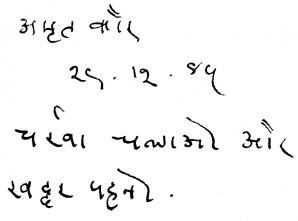 અમૃત કૌર
૨૯.૧૨.૪૫
ચર્ખા ચલાઓ ઔર
ખદ્દર પહનો.